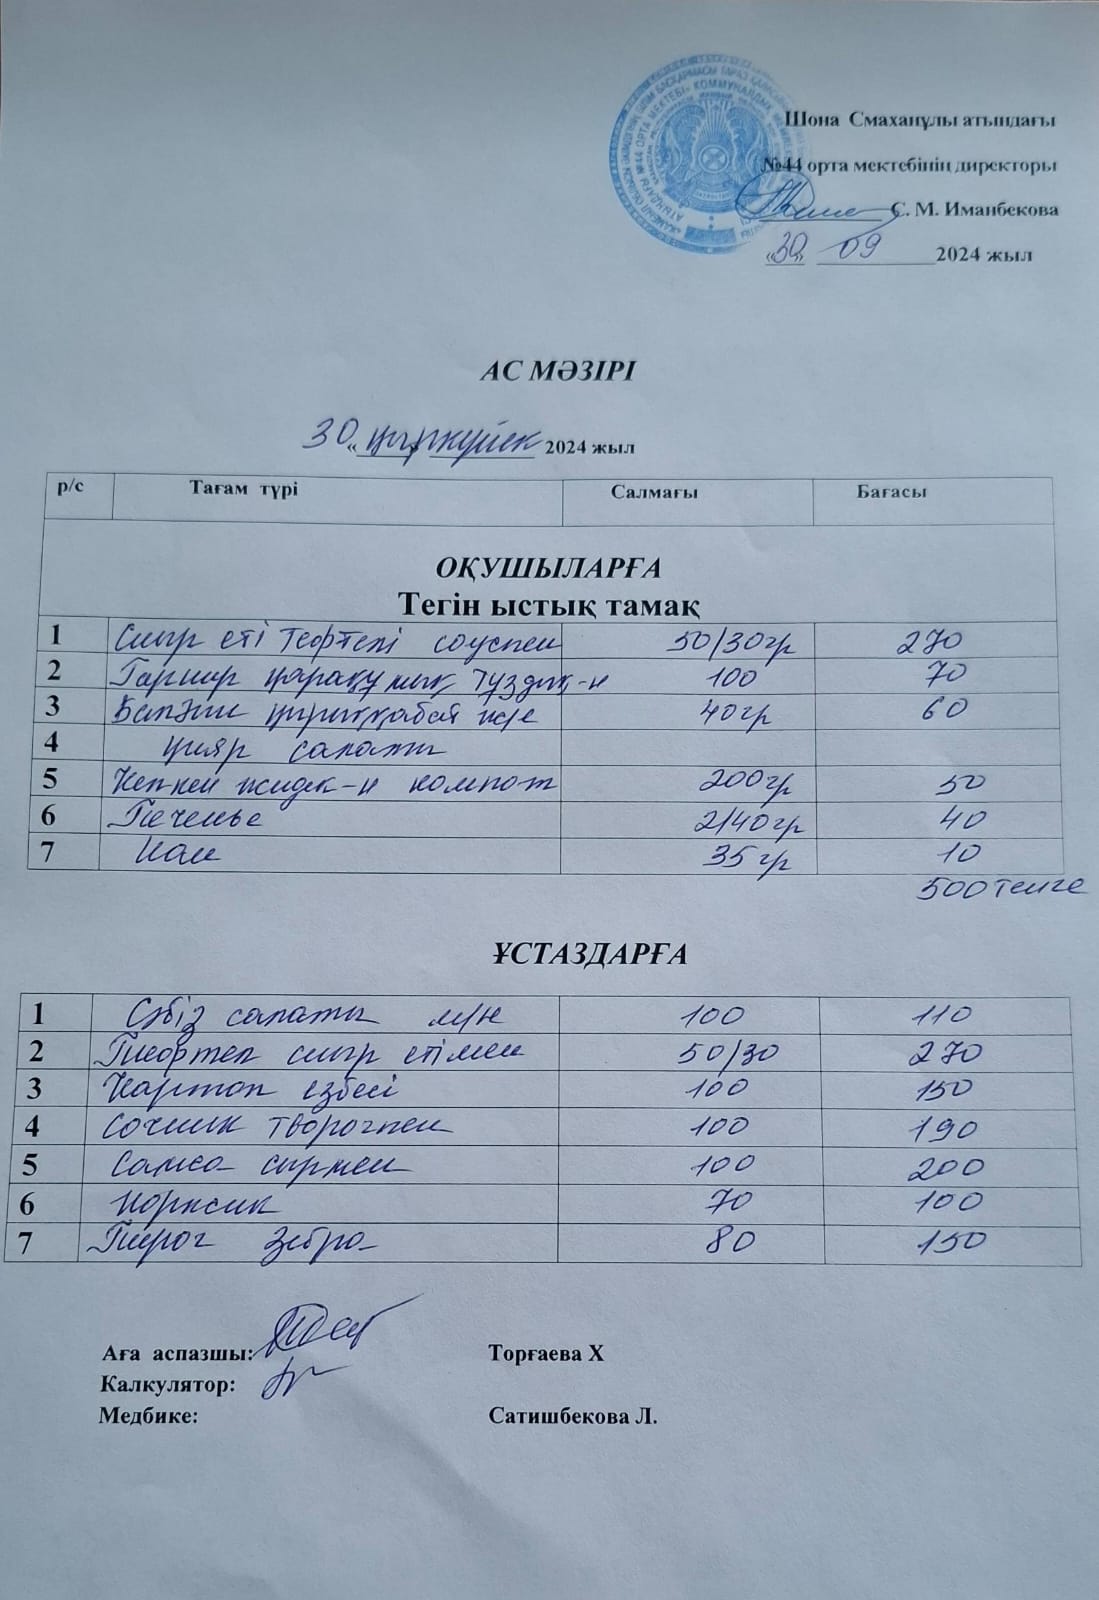 Шона Смаханұлы атындағы
№44 орта мектебінің директоры
С. М. Иманбекова
«30» 09 2024 жыл
АС МӘЗІРІ
30 «қыркүйек» 2024 жыл
р/с Тағам түрі Салмағы Бағасы
ОҚУШЫЛАРҒА
Тегін ыстық тамақ
1 Сиыр еті Тефтелі соуспен 50/30гр 270
2 Гарнир қарақұмық, тұздық-н 100 70
3 Балғын қырыққабат және 40гр 60
4 қияр салаты
5 Кепкен жидек-н компот 200гр 50
6 Печенье 2/40гр 40
7 Нан 35гр 10
500 тенге
ҰСТАЗДАРҒА
1 Сәбіз салаты м/н 100 110
2 Тефтел сиыр етімен 50/30 270
3 Картоп езбесі 100 150
4 Сочник творогпен 100 190
5 Самса сырмен 100 200
6 Коржик 70 100
7 Пирог Зебра 80 150
Аға аспазшы: Торғаева Х
Калкулятор:
Медбике: Сатишбекова Л.